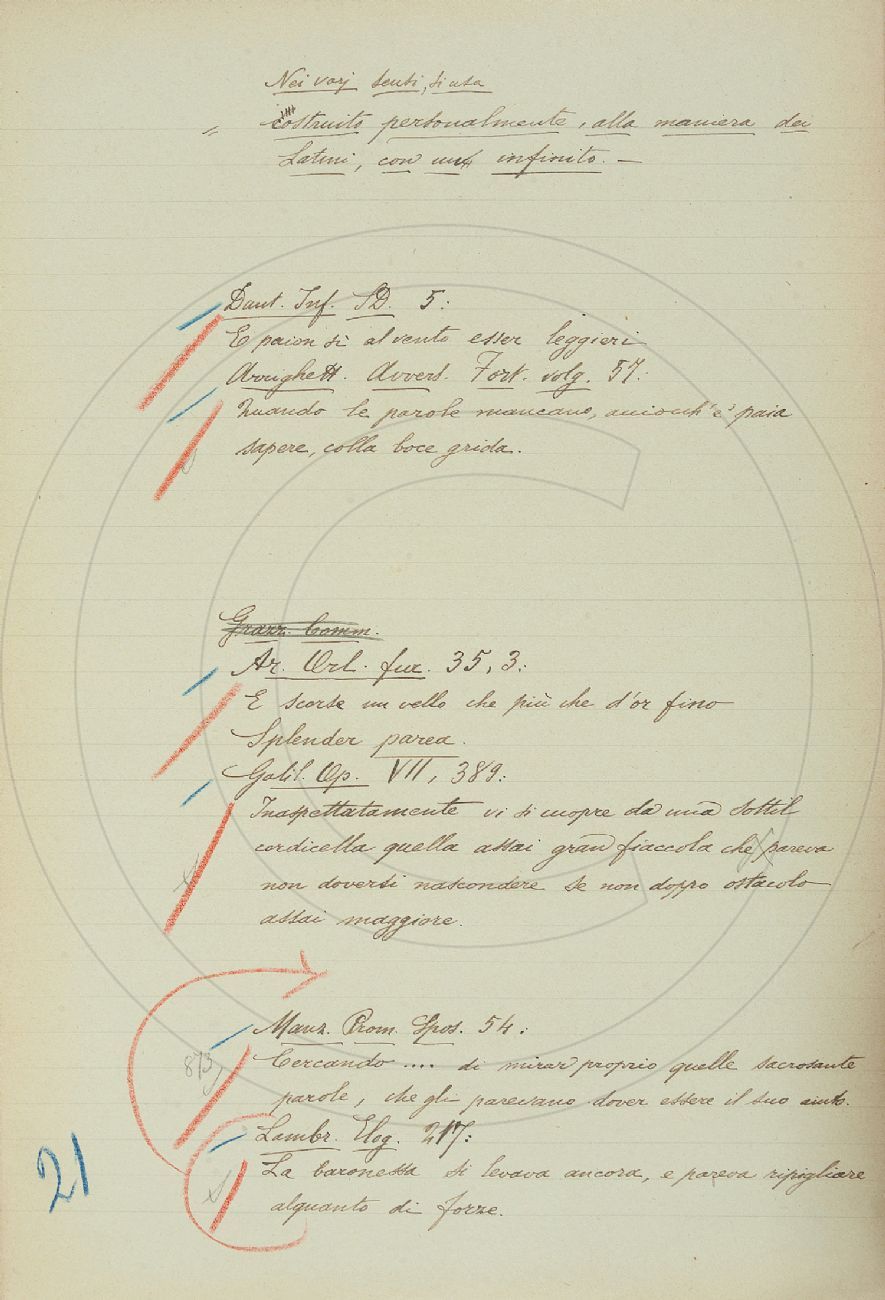 Nei varj sensi, si usa
" costruito personalmente, alla maniera dei
Latini, con un infinito. —
Dant. Inf. SD. 5:
E paion sì al vento esser leggieri
Arrighett. Avvers. Fort. volg. 57:
Quando le parole mancano, acciocch'e' paia
sapere, colla boce grida.
Grazz. Comm.
Ar. Orl. fur. 35, 3:
E scorse un vello che più che d'or fino
Splender parea.
Galil. Op. VII, 389:
Inaspettatamente vi si cuopre da una sottil
cordicella quella assai gran fiaccola che pareva
non doversi nascondere se non doppo ostacolo
assai maggiore.
Manz. Prom. Spos. 54:
Cercando .... di proprio quelle sacrosante
873
parole, che gli parevano dover essere il suo aiuto.
Lambr. Elog. 217:
La baronessa si levava ancora, e pareva ripigliare
alquanto di forze.
21